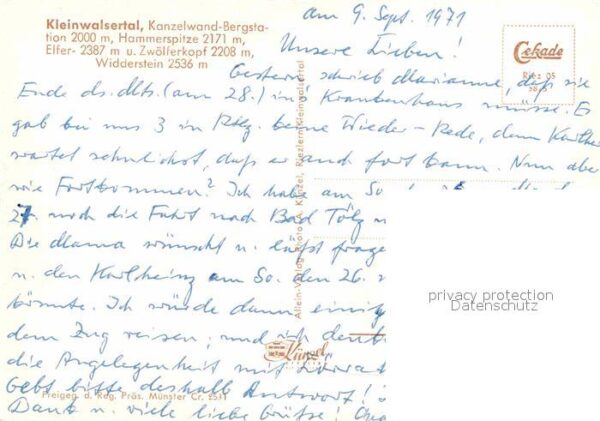 Kleinwalsertal, Kanzelwand-Bergsta-
tion 2000 m, Hammerspitze 2171 m,
Elfer- 2387 m u. Zwölferkopf 2208 m,
Widderstein 2536 m
am 9. Sept. 1971
Unsere Lieben!
Cekade
Riez 05
Gestern schrieb Marianne, daß sie
Ende ds. Mts. (am 28.) ins Krankenhaus müsse. Es
gab bei uns 3 in keine Wieder-Rede, denn Karlhei
wartet sehnlichst, daß er fort kann. Nun aber
wie Fortkommen? Ich habe am So
27. noch die Fahrt nach Bad Tölz
Die Mama wünscht u. läßt frage
u. den Karlheinz am So. den 26.
könnte. Ich würde dann einig
dem Zug reisen, und
die Angelegenheit mit
Gebt bitte deshalb Antwort!
Dank u. viele liebe Grüße!
Allein-Verlag Photo A. Künzel, Riezlern Kleinwalsertal
Künzel
Freigeg. d. Reg. Präs. Münster Cr. 2511
privacy protection
Datenschutz